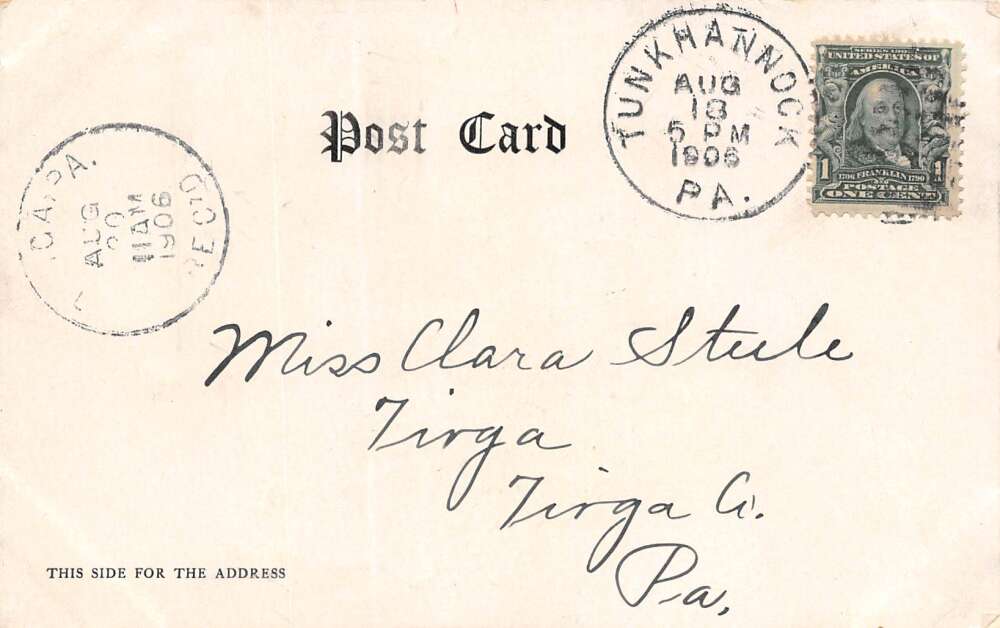 Post Card
TUNKHANNOCK
AUG
18
5 PM
1906
PA.
SERIES 1902
UNITED STATES OF
AMERICA
1 1
1706 FRANKLIN 1790
POSTAGE
ONE CENT
GA, PA.
AUG
20
11 AM
1906
REC'D
Miss Clara Steele
Tioga
Tioga Co.
Pa.
THIS SIDE FOR THE ADDRESS